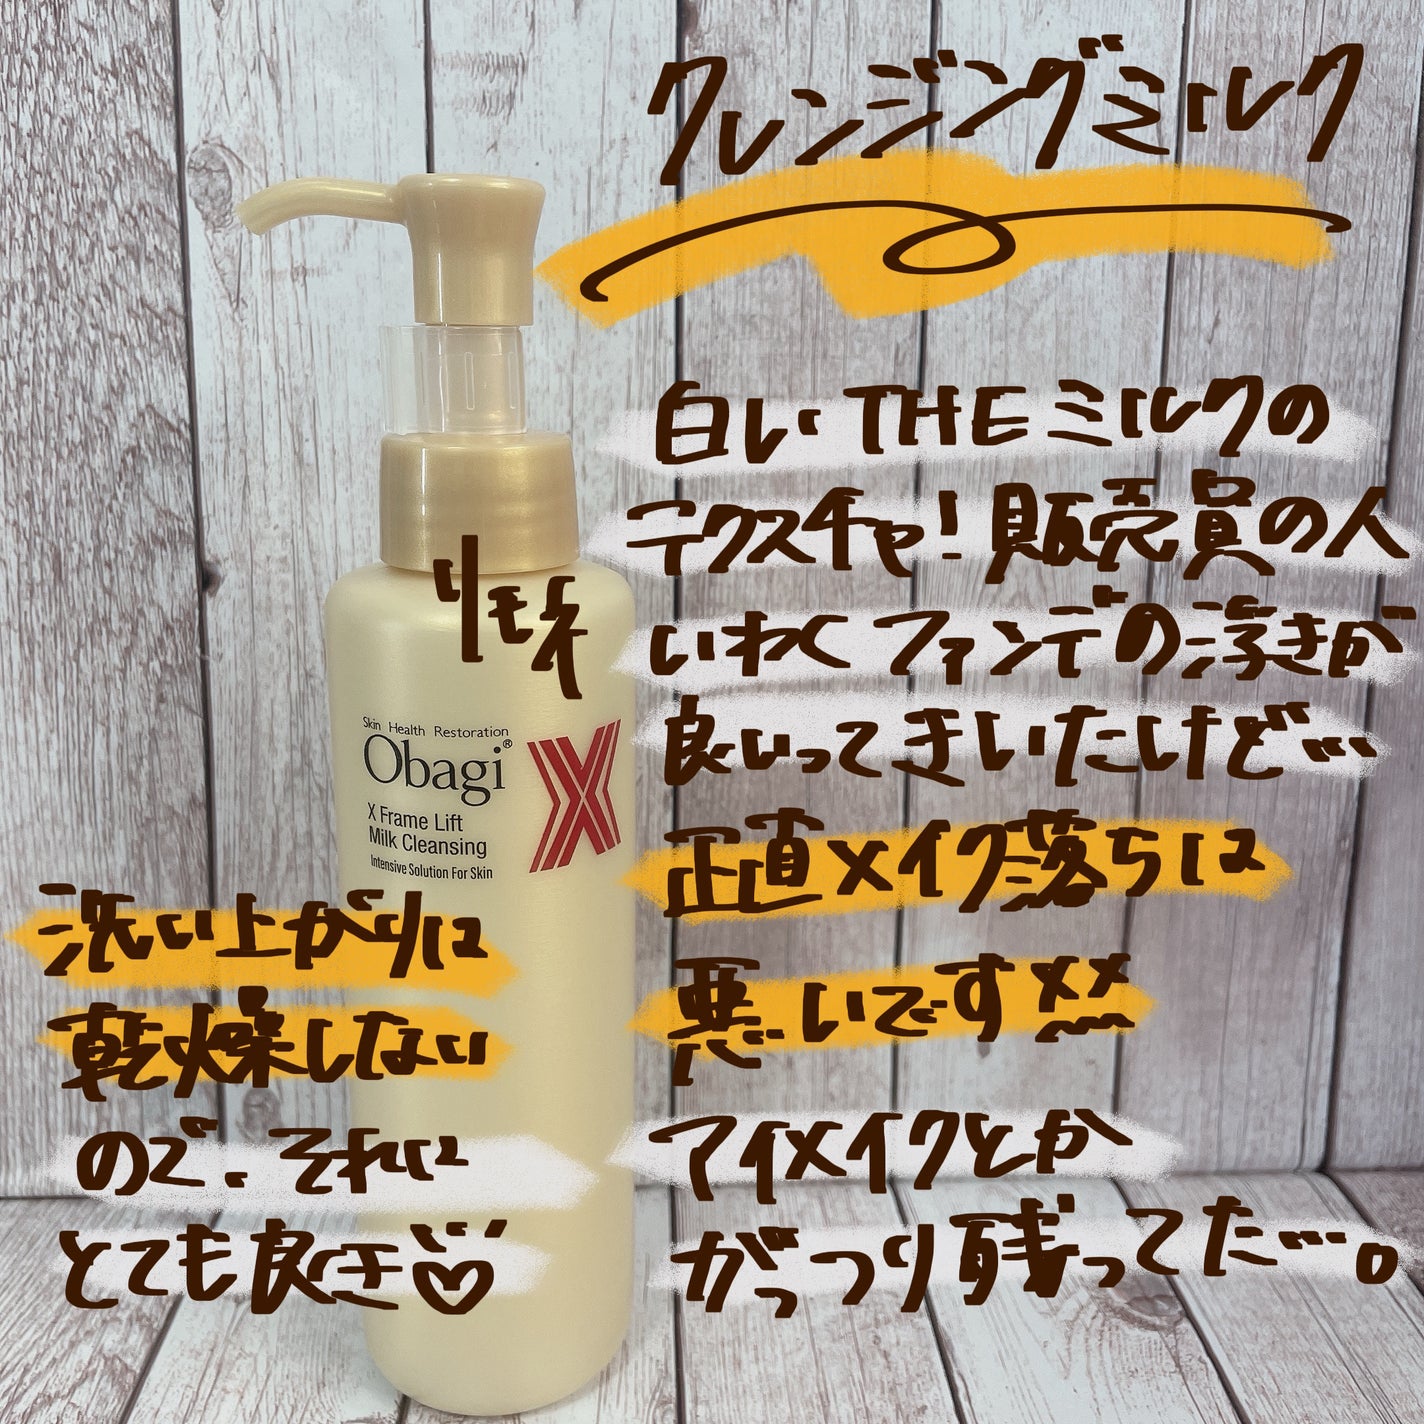 クレンジングミルク
白い THE ミルクの
テクスチャ！販売員の人
いわくファンデの浮きが
良いってきいたけど…
正直メイク落ちは
悪いです××
アイメイクとか
がっつり残ってた…。
Skin Health Restoration
Obagi®
X
X Frame Lift
Milk Cleansing
Intensive Solution For Skin
洗い上がりは
乾燥しない
ので、それは
とても良き♡